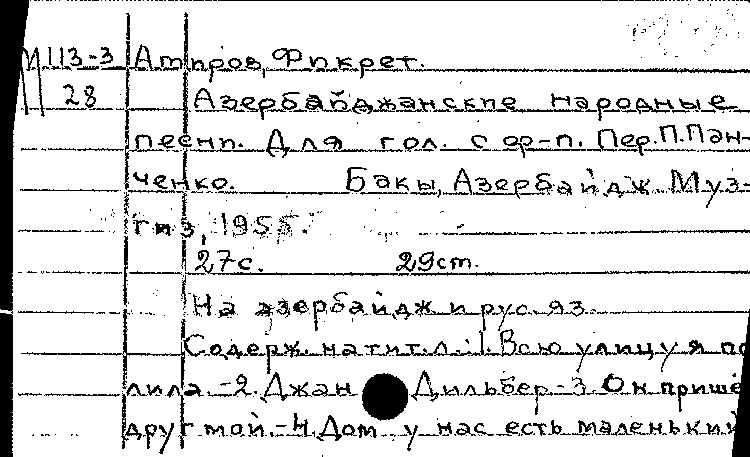 М113-3 Амиров, Фикрет.
28 Азербайджанские народные
песни. Для гол. с ор-п. Пер. П. Пан-
ченко. Бакы, Азербайдж. Муз-
гиз, 1955.
27с. 29ст.
На азербайдж и рус. яз.
Содерж. на тит. л.: 1. Всю улицу я по
лила. -2. Джан Дильбер -3. Он пришё
друг мой. -4. Дом у нас есть маленький